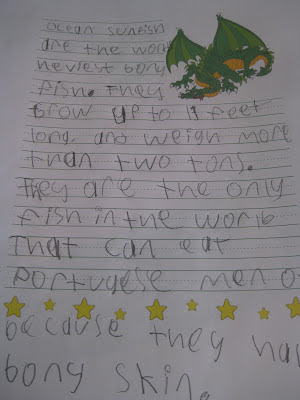 ocean sunfish
are the worlb
heviest bony
fish. They
Grow up to 11 feet
long, and weigh more
than two tons.
They are the only
fish in the worlb
That can eat
Portugese men o
because they hav
bony skin.